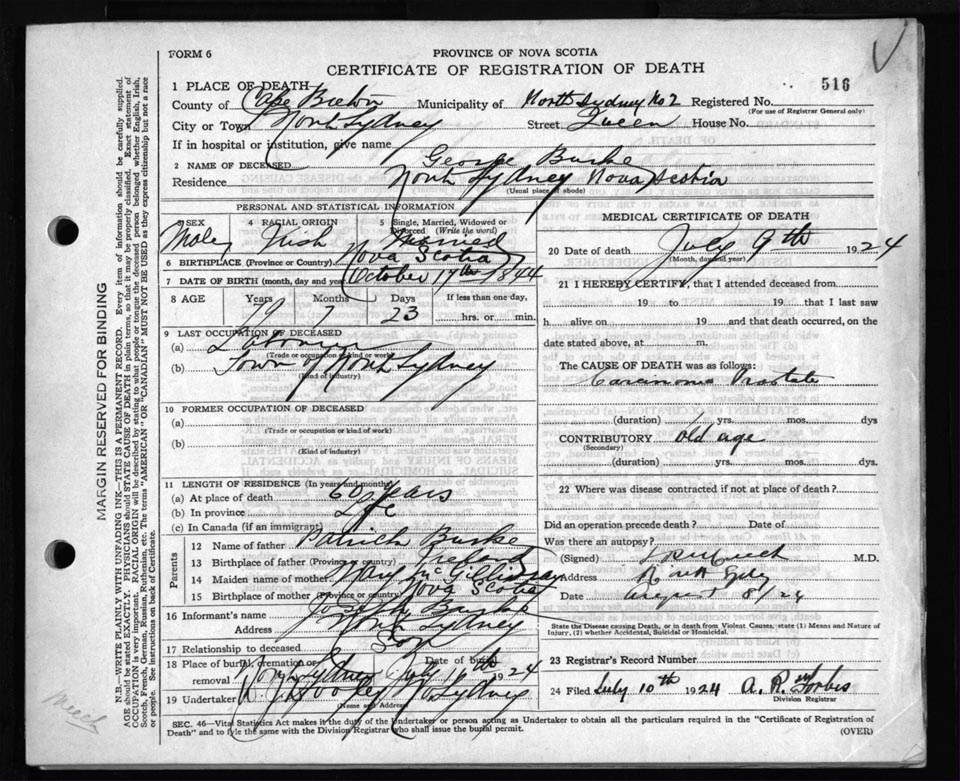 FORM 6
PROVINCE OF NOVA SCOTIA
CERTIFICATE OF REGISTRATION OF DEATH
516
1 PLACE OF DEATH
County of Cape Breton Municipality of North Sydney No 2 Registered No.
(For use of Registrar General only)
City or Town North Sydney Street Queen House No.
If in hospital or institution, give name
2 NAME OF DECEASED George Burke
Residence North Sydney Nova Scotia
(Usual place of abode)
PERSONAL AND STATISTICAL INFORMATION
3 SEX 4 RACIAL ORIGIN 5 Single, Married, Widowed or Divorced (Write the word)
Male Irish
6 BIRTHPLACE (Province or Country) Nova Scotia
7 DATE OF BIRTH (month, day and year) October 17th 1844
8 AGE Years Months Days If less than one day,
79 7 23 hrs. or min.
9 LAST OCCUPATION OF DECEASED
(a)
(Trade or occupation or kind of work)
(b) Town of North Sydney
(Kind of industry)
10 FORMER OCCUPATION OF DECEASED
(a)
(Trade or occupation or kind of work)
(b)
(Kind of industry)
11 LENGTH OF RESIDENCE (In years and months)
(a) At place of death 60 Years
(b) In province Life
(c) In Canada (if an immigrant)
Parents
12 Name of father Patrick Burke
13 Birthplace of father (Province or country) Ireland
14 Maiden name of mother Mary McGillivray
15 Birthplace of mother (Province or country) Nova Scotia
16 Informant's name Joseph Burke
Address North Sydney
17 Relationship to deceased Son
18 Place of burial, cremation or removal North Sydney Date of burial July 11th 1924
19 Undertaker W. J. Dooley N. Sydney
(Name and Address)
MEDICAL CERTIFICATE OF DEATH
20 Date of death July 9th 1924
(Month, day and year)
21 I HEREBY CERTIFY, that I attended deceased from
19 to 19 that I last saw
h alive on 19 and that death occurred, on the
date stated above, at m.
The CAUSE OF DEATH was as follows:
Carcinoma Prostate
(duration) yrs. mos. dys
CONTRIBUTORY old age
(Secondary)
(duration) yrs. mos. dys.
22 Where was disease contracted if not at place of death?
Did an operation precede death? Date of
Was there an autopsy?
(Signed) M.D.
Address
Date August 8/24
State the Disease causing Death, or in death from Violent Causes, state (1) Means and Nature of Injury, (2) whether Accidental, Suicidal or Homicidal.
23 Registrar's Record Number
24 Filed July 10th 1924 A. R. Forbes
Division Registrar
SEC. 46—Vital Statistics Act makes it the duty of the Undertaker or person acting as Undertaker to obtain all the particulars required in the "Certificate of Registration of
Death" and to file the same with the Division Registrar who shall issue the burial permit.
(OVER)
MARGIN RESERVED FOR BINDING
N.B.—WRITE PLAINLY WITH UNFADING INK—THIS IS A PERMANENT RECORD. Every item of information should be carefully supplied.
AGE should be stated EXACTLY. PHYSICIANS should STATE CAUSE OF DEATH in plain terms, so that it may be properly classified. Exact statement of
OCCUPATION is very important. RACIAL ORIGIN will be described by stating to what people or tongue the deceased person belonged whether English, Irish,
Scotch, French, German, Russian, Ruthenian, etc. The terms "AMERICAN" or "CANADIAN" MUST NOT BE USED as they express citizenship but not a race
or people. See instructions on back of Certificate.